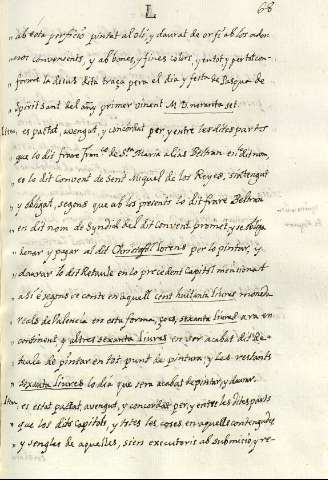 L
68
" ab tota perfficio pintat al oli, y daurat de or fi ab los ador
" nos convenients, y ab bones, y fines colors, y en tot y per tot con-
" forme la desus dita traça pera el dia y festa de Pasqua de
" Spirit Sant del any primer vinent M.D. noranta set.
Item es pactat, avengut, y concordat per y entre les dites parts
" que lo dit frare Franco. de Sta. Maria alias Beltran en dit nom,
" es lo dit Convent de Sent Miguel de los Reyes, sia tengut
" y obligat, segons que ab los presents lo dit frare Beltran
" en dit nom de Syndich del dit convent promet, y se obliga
" donar y pagar al dit Christofol Lorens per lo pintar, y
" daurar lo dit Retaule en lo precedent Capitol mencionat
" a si e segons se conte en aquell cent huitanta liures moneda
" reals de Valencia en esta forma, ço es, sexanta liures ara en
" continent y altres sexanta liures en ser acabat dit Re-
" taule de pintar en tot punt de pintura y les restants
" sexanta liures lo dia que sera acabat de pintar, y daurar.
Item es estat pactat, avengut, y concordat per, y entre les dites parts
" que los dits Capitols, y totes les coses en aquells contengudes
" y sengles de aquelles, sien executoris ab submicio, y re-